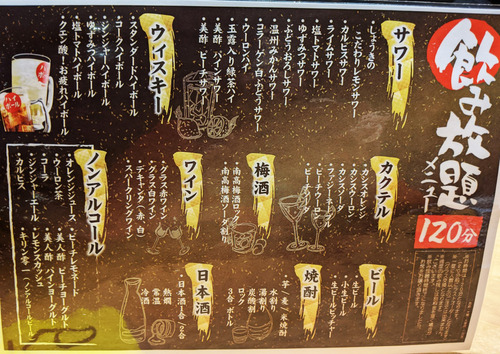 飲み放題
メニュー
120分
サワー
・しょうきの
こだわりレモンサワー
・カルピスサワー
・ライムサワー
・塩トマトサワー
・ゆずみつサワー
・ぶどうおろしサワー
・温州みかんサワー
・コラーゲン白ぶどうサワー
・ウーロンハイ
・玉露入り緑茶ハイ
・美酢 パインサワー
・美酢 ピーチサワー
ウィスキー
・スタンダードハイボール
・コークハイボール
・ジンジャーハイボール
・ゆずみつハイボール
・塩トマトハイボール
・クエン酸！お疲れハイボール
ハイボール
カクテル
・カシスオレンジ
・カシスウーロン
・カシスソーダ
・ファジーネーブル
・ピーチウーロン
・ピーチソーダ
梅酒
・南高梅酒ロック
・南高梅酒ソーダ割り
ワイン
・グラス赤ワイン
・グラス白ワイン
・デキャンタ（赤・白）
・スパークリングワイン
ノンアルコール
・オレンジジュース
・ウーロン茶
・コーラ
・ジンジャーエール
・カルピス
・ピーチレモネード
・美人酢 ピーチヨーグルト
・美人酢 パインヨーグルト
・レモンスカッシュ
・キリン零一（ノンアルコールビール）
ビール
・生ビール
・小生ビール
・生ビールピッチャー
焼酎
芋／麦／米焼酎
・水割り
・湯割り
・炭酸割
・ロック
・3合ボトル
日本酒
日本酒1合／2合
・熱燗
・常温
・冷酒